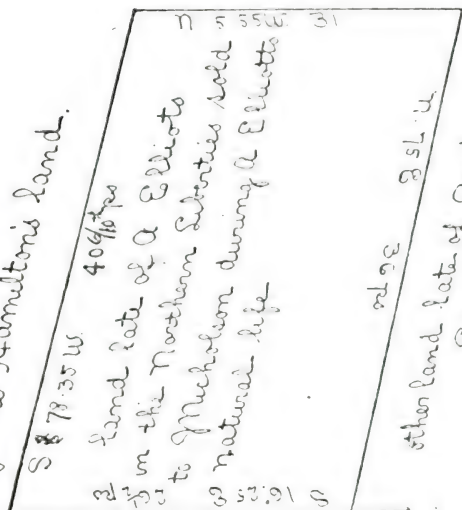 Hamilton's land.
S 78.35 W. 40 6/10 ps
N 5 55 W. 31
land late of A Elliots
in the Northern Liberties sold
to J Nicholson during A Elliotts
natural life
N. 75 E
36 ps
S 16.25 E
other land late of